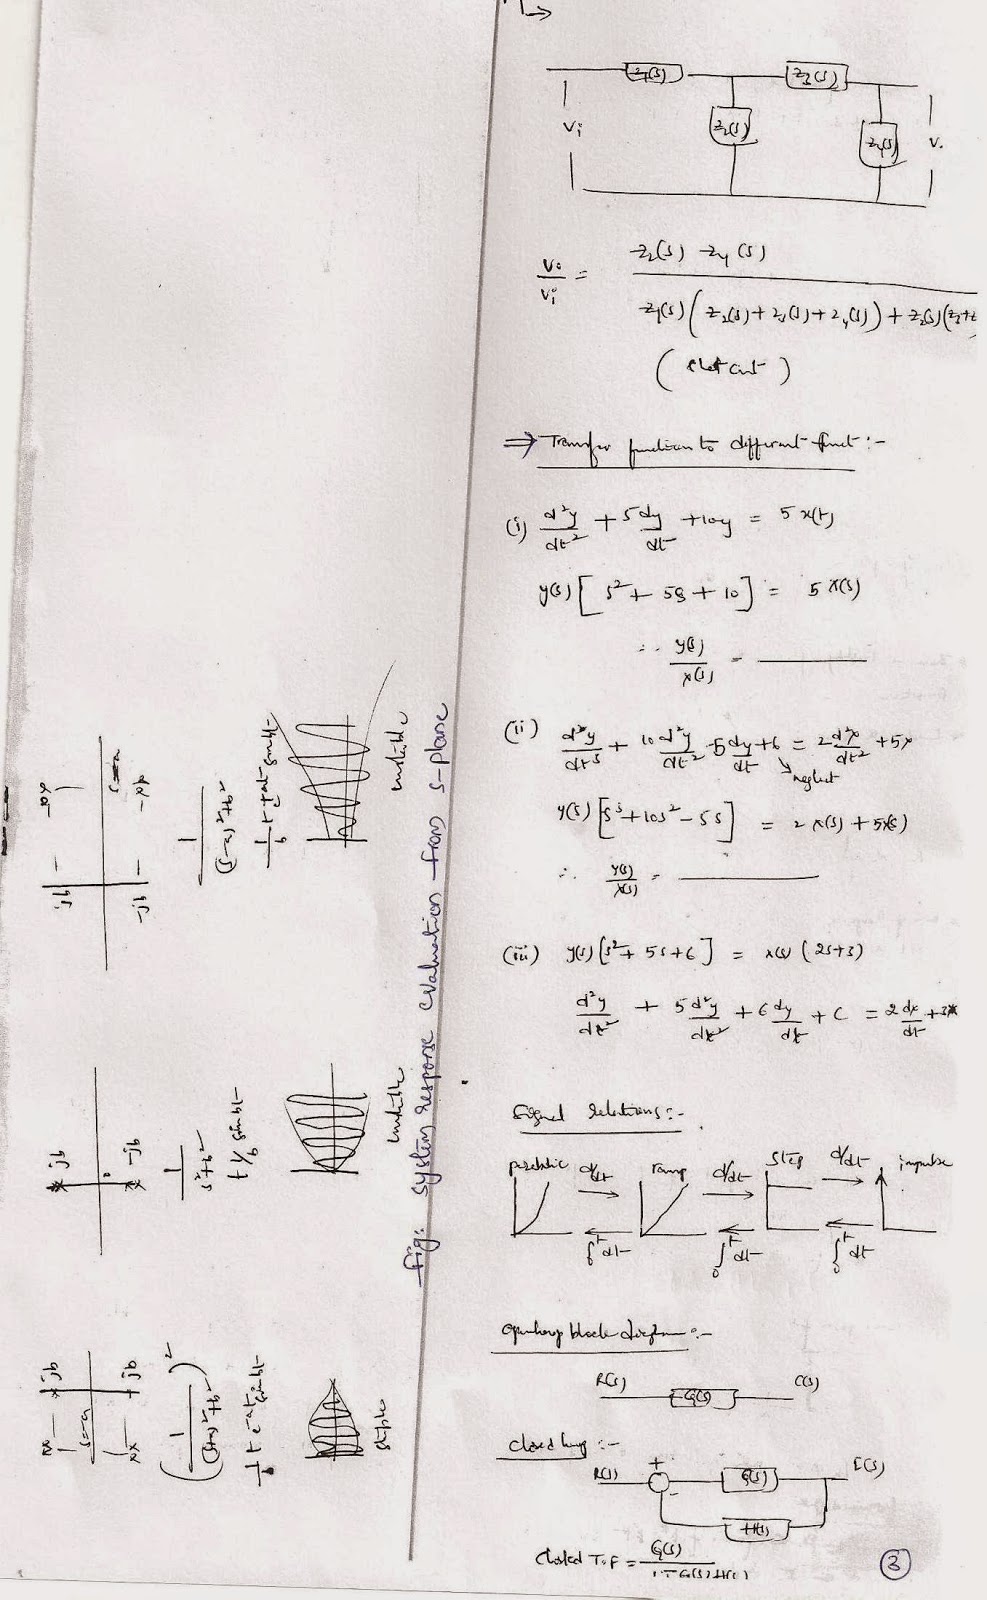 Z1(s)
Z3(s)
Vi
Z2(s)
Z4(s)
V.
Vo/Vi = Z2(s) Z4(s) / Z1(s) (Z2(s) + Z3(s) + Z4(s)) + Z2(s) (Z3+Z
⇒ Transfer function to different funct :-
(i) d²y/dt² + 5dy/dt + 10y = 5 x(t)
y(s) [ s² + 5s + 10 ] = 5 x(s)
∴ y(s)/x(s) = ______
(ii) d³y/dt³ + 10 d²y/dt² - 5 dy/dt + 6 = 2 d²x/dt² + 5x
neglect
y(s) [s³ + 10s² - 5s] = 2 x(s) + 5x(s)
∴ y(s)/x(s) = ______
(iii) y(s) [s² + 5s + 6] = x(s) (2s+3)
d²y/dt² + 5 d²y/dt² + 6 dy/dt + C = 2 dx/dt + 3x
Signal relations :-
parabolic d/dt ramp d/dt step d/dt impulse
∫₀ᵗ dt ∫₀ᵗ dt ∫₀ᵗ dt
Openloop block diagram :-
R(s) G(s) C(s)
Closed loop :-
R(s) + - G(s) C(s)
H(s)
Closed T.F = G(s) / 1 + G(s) H(s)
3
jb
-jb
s=-a
(1/(s+a)²+b²)²
1/b t e^-at sin bt
stable
jb
-jb
1/s²+b²
t 1/b sin bt
unstable
jb
-jb
s=a
1/(s-a)²+b²
1/b t e^+at sin bt
unstable
fig: System response evaluation from s-plane